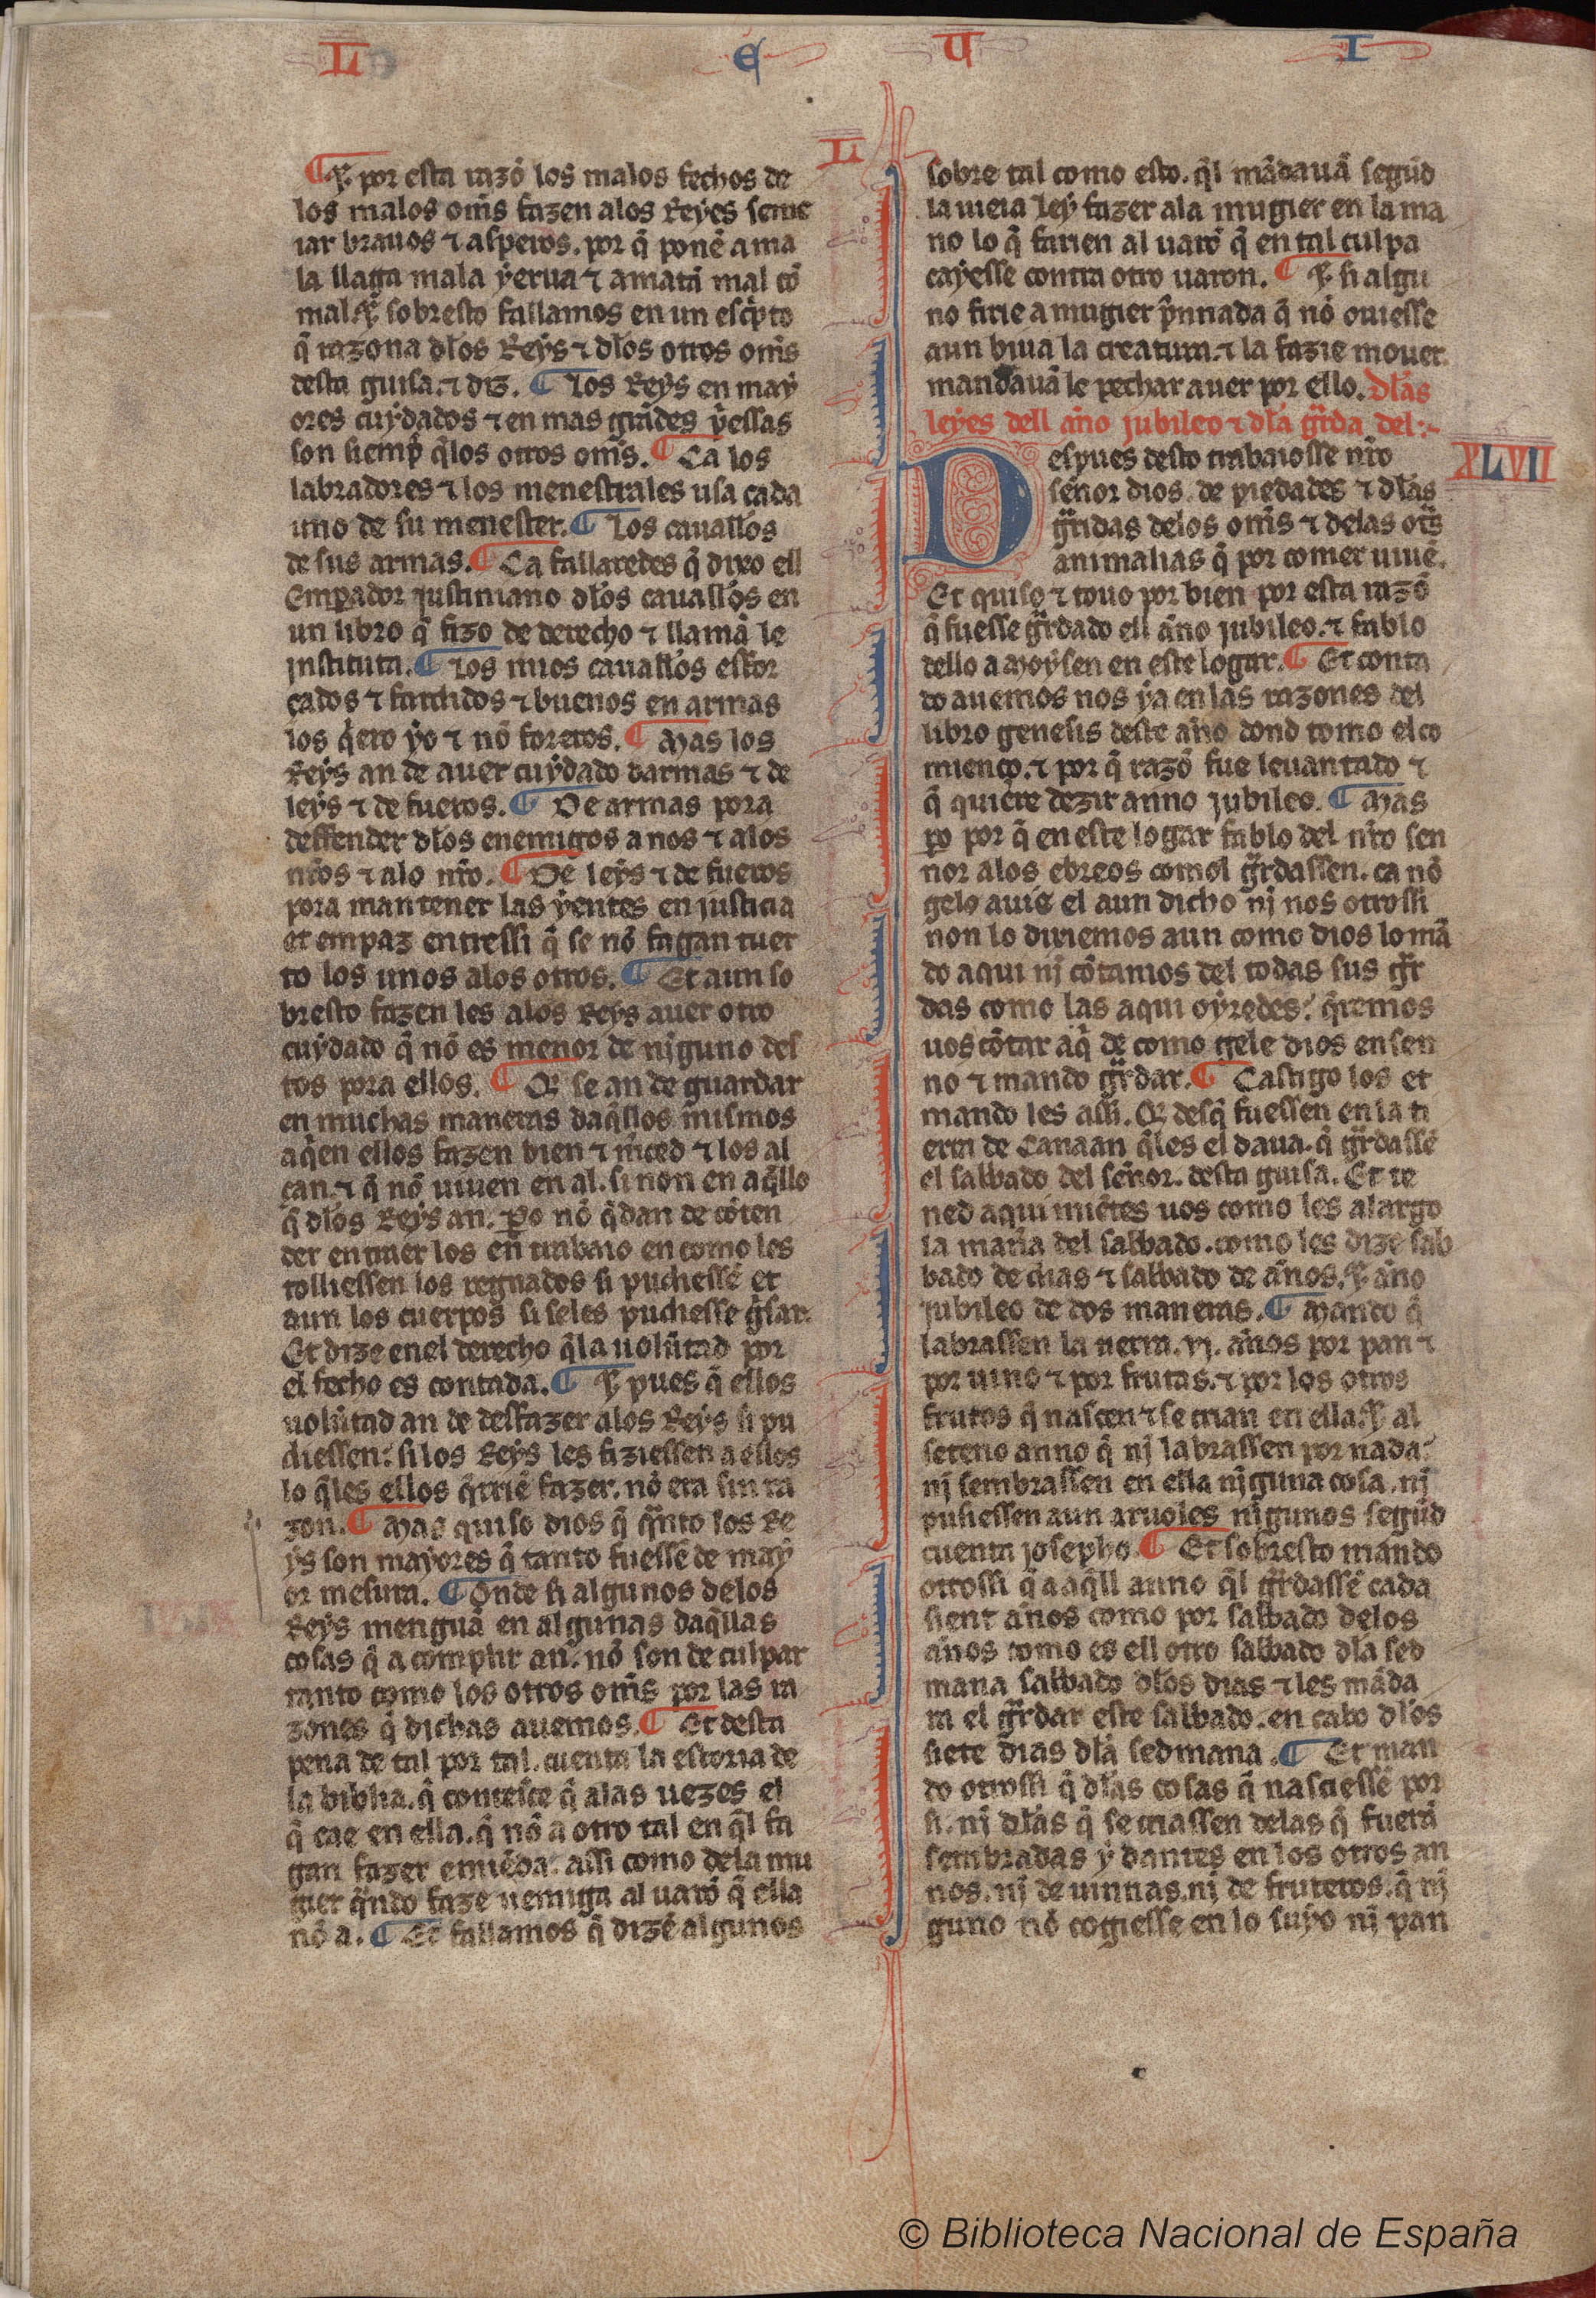 L E U I
¶ Et por esta razõ los malos fechos de
los malos om̃s fazen alos Reyes seme
iar brauos ⁊ asperos. por q̃ ponẽ a ma
la llaga mala yerua ⁊ amatã mal cõ
mal. Et sobresto fallamos en un esc̃pto
q̃ razona dl̃os Reys ⁊ dl̃os otros om̃s
desta guisa. ⁊ diz. ¶ Los Reys en may
ores cuydados ⁊ en mas grãdes p̃essas
son siemp̃ q̃los otros om̃s. ¶ Ca los
labradores ⁊ los menestrales usa cada
uno de su menester. ¶ Los cauall̃os
de sus armas. ¶ Ca fallaredes q̃ dixo ell
Emp̃ador justiniano dl̃os cauall̃os en
un libro q̃ fizo de derecho ⁊ llamã le
jnstituta. ¶ Los mios cauall̃os esfor
çados ⁊ fardidos ⁊ buenos en armas
los q̃ero yo ⁊ nõ foreros. ¶ Mas los
Reys an de auer cuydado darmas ⁊ de
leys ⁊ de fueros. ¶ De armas pora
deffender dl̃os enemigos a nos ⁊ alos
nr̃os ⁊ alo nr̃o. ¶ De leys ⁊ de fueros
pora mantener las yentes en justicia
et empaz entressi q̃ se nõ fagan tuer
to los unos alos otros. ¶ Et aun so
bresto fazen les alos Reys auer otro
cuydado q̃ nõ es menor de nj̃guno des
tos pora ellos. ¶ Q̃ se an de guardar
en muchas maneras daq̃llos mismos
aq̃en ellos fazen bien ⁊ m̃ced ⁊ los al
çan. ⁊ q̃ nõ uiuen en al. si non en aq̃llo
q̃ dl̃os Reys an. p̃o nõ q̃dan de cõten
der en traer los en trabaio en como les
tolliessen los regnados si pudiessẽ et
aun los cuerpos si seles pudiesse g̃sar.
Et dize enel derecho q̃la uolũtad por
el fecho es contada. ¶ Et pues q̃ ellos
uolũtad an de desfazer alos Reys si pu
diessen: si los Reys les fiziessen a ellos
lo q̃les ellos q̃rriẽ fazer. nõ era sin ra
zon. ¶ Mas quiso dios q̃ q̃nto los Re
ys son mayores q̃ tanto fuessẽ de may
or mesura. ¶ Onde si algunos delos
Reys menguã en algunas daq̃llas
cosas q̃ a complir an. nõ son de culpar
tanto como los otros om̃s por las ra
zones q̃ dichas auemos. ¶ Et desta
pena de tal por tal. cuenta la estoria de
la biblia. q̃ contesce q̃ alas uezes el
q̃ cae en ella. q̃ nõ a otro tal en q̃l fa
gan fazer emiẽda. assi como dela mu
gier q̃ndo faze nemiga al uarõ q̃ ella
nõ a. ¶ Et fallamos q̃ dizẽ algunos
L
sobre tal como esto. q̃l mãdauã segũd
la uieia ley fazer ala mugier en la ma
no lo q̃ farien al uarõ q̃ en tal culpa
cayesse contra otro uaron. ¶ Et si algu
no firie a mugier p̃nnada q̃ nõ ouiesse
aun biua la creatura. ⁊ la fazie mouer.
mandauã le pechar auer por ello. Dl̃as
leyes dell ãno jubileo ⁊ dl̃a gr̃da del:~
XLVII
Despues desto trabaiosse nr̃o
sẽnor dios. de piedades ⁊ dl̃as
gr̃idas delos om̃s ⁊ delas otr̃s
animalias q̃ por comer uiuẽ.
Et quiso ⁊ touo por bien por esta razõ
q̃ fuesse gr̃dado ell ãno jubileo. ⁊ fablo
dello a Moysen en este logar. ¶ Et conta
do auemos nos ya en las razones del
libro genesis deste ãno dond tomo el co
mienço. ⁊ por q̃ razõ fue leuantado ⁊
q̃ quiere dezir anno jubileo. ¶ Mas
p̃o por q̃ en este logar fablo del nr̃o sen
nor alos ebreos comol gr̃dassen. ca nõ
gelo auie el aun dicho nj̃ nos otrossi
non lo dixiemos aun como dios lo mã
do aqui nj̃ cõtamos del todas sus gr̃
das como las aqui oyredes: q̃remos
uos cõtar aq̃ de como gele dios ensen
no ⁊ mando gr̃dar. ¶ Castigo los et
mando les assi. Q̃ desq̃ fuessen en la ti
erra de Canaan q̃les el daua. q̃ gr̃dassẽ
el sabbado del sẽnor. desta guisa. Et te
ned aqui miẽtes uos como les alargo
la mat̃ia del sabbado. como les dize sab
bado de dias ⁊ sabbado de ãnos. Et ãno
jubileo de dos maneras. ¶ Mando q̃
labrassen la tierra. vj. ãnos por pan ⁊
por uino ⁊ por frutas. ⁊ por los otros
frutos q̃ nascen ⁊ se crian en ella. Et al
seteno anno q̃ nj̃ labrassen por nada:
nj̃ sembrassen en ella nj̃guna cosa. nj̃
pusiessen aun aruoles nj̃gunos segũd
cuenta josepho. ¶ Et sobresto mando
otrossi q̃ a aq̃ll anno q̃l gr̃dassẽ cada
sient ãnos como por sabbado delos
ãnos como es ell otro sabbado dl̃a sed
mana sabbado dl̃os dias ⁊ les mãda
ra el gr̃dar este sabbado. en cabo dl̃os
siete dias dl̃a sedmana. ¶ Et man
do otrossi q̃ dl̃as cosas q̃ nasciessẽ por
si. nj̃ dl̃as q̃ se criassen delas q̃ fuerã
sembradas y dantes en los otros an
nos. nj̃ de uinnas. nj̃ de fruteros. q̃ nj̃
guno nõ cogiesse en lo suyo nj̃ pan
© Biblioteca Nacional de España